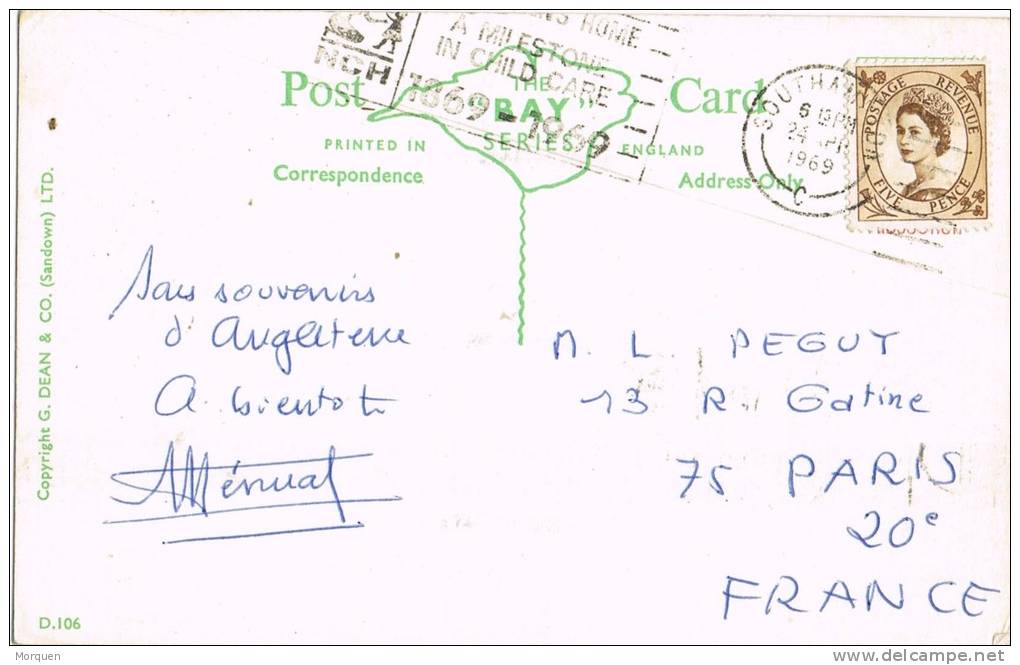 HOME
A MILESTONE
IN CHILD CARE
NCH 1869-1969
Post Card
THE
"BAY"
SERIES
PRINTED IN ENGLAND
Correspondence
Address Only
6 PM
24 APR
1969
C
POSTAGE REVENUE
FIVE PENCE
Copyright G. DEAN & CO. (Sandown) LTD.
souvenirs
d'Angleterre
A bientot
M. L. PEGUY
13 R. Gatine
75 PARIS
20e
FRANCE
D.106
morquen
http://www.delcampe.net